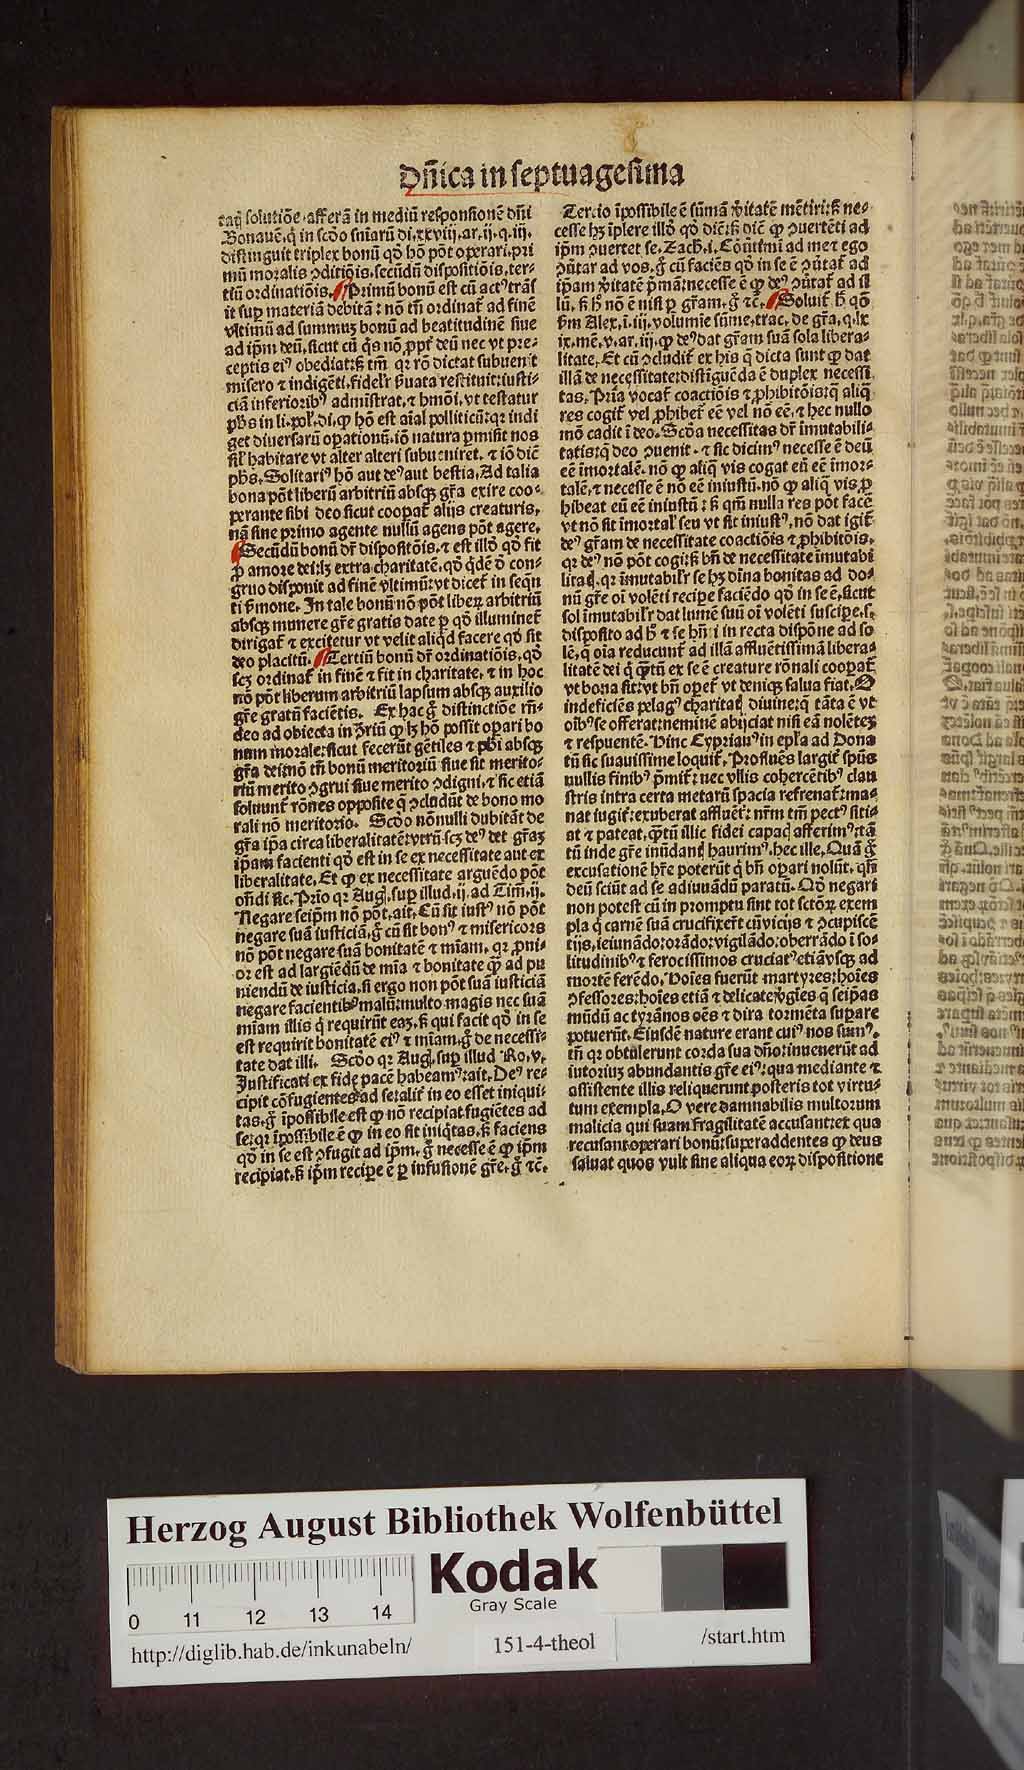 Dñica in septuagesima
taꝗ̃ solutiõe. afferã in mediũ responsionẽ dñi
Bonauẽ. q̃ in scd̃o sñiarũ di. xxviij. ar. ij. q. iij.
distinguit triplex bonũ qd̃ hõ põt operari. pri
mũ moralis ꝯditiõis. secũdũ dispositiõis. ter⸗
tiũ ordinatiõis. Primũ bonũ est cũ actꝰ trãs
it sup̱ materiã debitã: nõ tñ ordinat᷑ ad finẽ
vltimũ ad summuꝫ bonũ ad beatitudinẽ siue
ad ip̃m deũ. sicut cũ q̃s nõ ꝓpt̃ deũ nec vt pre⸗
ceptis eiꝰ obediat: s̃ tm̃ qꝛ rõ dictat subuenit
misero ⁊ indigẽti. fidelr̃ ẜuata restituit: iusti⸗
ciã inferioribꝰ admĩstrat. ⁊ hmõi. vt testatur
ph̃s in li. pol̃. di. ꝙ hõ est aĩal polliticũ: qꝛ indi
get diuersarũ oꝑationũ. iõ natura ꝑmisit nos
sil̃ habitare vt alter alteri subueniret. ⁊ iõ dic̃
ph̃s. Solitariꝰ hõ aut deꝰ aut bestia. Ad talia
bona põt liberũ arbitriũ absqꝫ gr̃a exire coo⸗
perante sibi deo sicut cooꝑat᷑ alijs creaturis.
nã sine primo agente nullũ agens põt agere.
Secũdũ bonũ dr̃ dispositõis. ⁊ est illd̃ qd̃ fit
ꝓ amore dei: lꝫ extra charitatẽ. qd̃ q̃dẽ d̃ con⸗
gruo disponit ad finẽ vltimũ: vt dicet᷑ in sequẽ
ti ẜmone. In tale bonũ nõ põt liberꝫ arbitriũ
absqꝫ munere gr̃e gratis date ꝑ qd̃ illuminet᷑
dirigat᷑ ⁊ excitetur vt velit aliqd̃ facere qd̃ sit
deo placitũ. Tertiũ bonũ dr̃ ordinatiõis. qd̃
scꝫ ordinat᷑ in finẽ ⁊ fit in charitate. ⁊ in hoc
nõ põt liberum arbitriũ lapsum absqꝫ auxilio
gr̃e gratũ faciẽtis. Ex hac g̃ distinctiõe rñ⸗
deo ad obiecta in ꝯriũ ꝙ lꝫ hõ possit oꝑari bo
num morale: sicut fecerũt gẽtiles ⁊ ph̃i absqꝫ
gr̃a dei: nõ tñ bonũ meritoriũ siue sit merito⸗
riũ merito ꝯgrui siue merito ꝯdigni. ⁊ sic etiã
soluunt᷑ rõnes opposite q̃ ꝯcludũt de bono mo
rali nõ meritorio. Scd̃o nõnulli dubitãt de
gr̃a ip̃a circa liberalitatẽ: vtrũ. scꝫ deꝰ det gr̃aꝫ
ip̃am facienti qd̃ est in se ex necessitate aut ex
liberalitate. Et ꝙ ex necessitate arguẽdo põt
oñdi sic. Prio qꝛ Aug. sup̱ illud. ij. ad Tim. ij.
Negare seip̃m nõ põt. ait. Cũ sit iustꝰ nõ põt
negare suã iusticiã. g̃ cũ sit bonꝰ ⁊ misericors
nõ põt negare suã bonitatẽ ⁊ mĩam. qꝛ ꝓni⸗
or est ad largiẽdũ de mĩa ⁊ bonitate q̃ ad pu
niendũ de iusticia. si ergo non põt suã iusticiã
negare facientibꝰ malũ: multo magis nec suã
mĩam illis q̃ requirũt eaꝫ. s̃ qui facit qd̃ in se
est requirit bonitatẽ eiꝰ ⁊ mĩam. g̃ de necessi⸗
tate dat illi. Scd̃o qꝛ Aug. sup̱ illud Ro. v.
Justificati ex fide pacẽ habeamꝰ: ait. Deꝰ re⸗
cipit cõfugientes ad se: alit᷑ in eo esset iniqui⸗
tas. g̃ ĩpossibile est ꝙ nõ recipiat fugiẽtes ad
se: qꝛ ĩpossibile ẽ ꝙ in eo sit iniq̃tas. s̃ faciens
qd̃ in se est ꝯfugit ad ip̃m. g̃ necesse ẽ ꝙ ip̃m
recipiat. s̃ ip̃m recipe ẽ ꝑ infusionẽ gr̃e. g̃ ⁊c̃.
Tercio ĩpossibile ẽ sũmã ṽitatẽ mẽtiri: s̃ ne⸗
cesse hꝫ ĩplere illd̃ qd̃ dic̃: s̃ dic̃ ꝙ ꝯuertẽti ad
ip̃m ꝯuertet se. Zach. i. Cõũtimĩ ad me ⁊ ego
ꝯũtar ad vos. g̃ cũ faciẽs qd̃ in se ẽ ꝯũtat᷑ ad
ip̃am ṽitatẽ p̃mã: necesse ẽ ꝙ deꝰ ꝯũtat᷑ ad il
lũ. s̃ h̃ nõ ẽ nisi ꝑ gr̃am. g̃ ⁊c̃. Soluit᷑ h̃ qõ
ẜm Alex. ĩ. iij. volumĩe sũme. trac. de gr̃a. q. lx
ix. mẽ. v. ar. iij. ꝙ deꝰ dat gr̃am suã sola libera⸗
litate. Et cũ ꝯcludit᷑ ex his q̃ dicta sunt ꝙ dat
illã de necessitate: distĩguẽda ẽ duplex necessi
tas. Pria vocat᷑ coactiõis ⁊ ꝓhibitõis: q̃ aliq̃
res cogit᷑ vel ꝓhibet᷑ eẽ vel nõ eẽ. ⁊ hec nullo
mõ cadit ĩ deo. Scd̃a necessitas dr̃ ĩmutabili⸗
tatis: q̃ deo ꝯuenit. ⁊ sic dicimꝰ necesse ẽ deũ
eẽ ĩmortalẽ. nõ ꝙ aliq̃ vis cogat eũ eẽ ĩmor⸗
talẽ. ⁊ necesse ẽ nõ eẽ iniustũ. nõ ꝙ aliq̃ vis ꝓ
hibeat eũ eẽ iniustũ: s̃ qm̃ nulla res põt facẽ
vt nõ sit ĩmortal᷑ seu vt sit iniustꝰ. nõ dat igit᷑
deꝰ gr̃am de necessitate coactiõis ⁊ ꝓhibitõis.
qꝛ deꝰ nõ põt cogi: s̃ bñ de necessitate ĩmutabi
litaꝭ. qꝛ ĩmutabilr̃ se hꝫ diĩna bonitas ad do⸗
nũ gr̃e oĩ volẽti recipe faciẽdo qd̃ in se ẽ. sicut
sol ĩmutabilr̃ dat lumẽ suũ oĩ volẽti suscipe. s.
disposito ad h̃ ⁊ se hñti in recta dispõne ad so
lẽ. q̃ oĩa reducunt᷑ ad illã affluẽtissimã libera⸗
litatẽ dei q̃ q̃tũ ex se ẽ creature rõnali cooꝑat᷑
vt bona fit: vt bñ oꝑet᷑ vt deniqꝫ salua fiat. O
indeficiẽs pelagꝰ charitaꝭ diuine: q̃ tãta ẽ vt
oĩbꝰ se offerat: neminẽ abijciat nisi eã nolẽteꝫ
⁊ respuentẽ. Hinc Cyprianꝰ in epl̃a ad Dona
tũ sic suauissime loquit᷑. Profluẽs largit᷑ spũs
nullis finibꝰ p̃mit᷑: nec vllis cohercẽtibꝰ clau
stris intra certa metarũ spacia refrenat᷑: ma⸗
nat iugit᷑: exuberat affluẽt᷑: nr̃m tm̃ pectꝰ siti⸗
at ⁊ pateat. q̃tũ illic fidei capacꝭ afferimꝰ: tã
tũ inde gr̃e inũdanꝭ haurimꝰ. hec ille. Quã g̃
excusationẽ hr̃e poterũt q̃ bñ oꝑari nolũt. qñ
deũ sciũt ad se adiuuãdũ paratũ. Qd̃ negari
non potest cũ in promptu sint tot sctõꝝ exem
pla q̃ carnẽ suã crucifixer̃t cũ vicijs ⁊ ꝯcupiscẽ
tijs. ieiunãdo: orãdo: vigilãdo: oberrãdo ĩ so⸗
litudinibꝰ ⁊ ferocissimos cruciatꝰ etiã vsqꝫ ad
mortẽ ferẽdo. Hoĩes fuerũt martyres: hoĩes
ꝯfessores: hoĩes etiã ⁊ delicate ṽgĩes q̃ seip̃as
mũdũ ac tyrãnos oẽs ⁊ dira tormẽta suꝑare
potuerũt. Eiusdẽ nature erant cuiꝰ nos sumꝰ.
tñ qꝛ obtulerunt corda sua dño: inuenerũt ad
iutorius abundantis gr̃e eiꝰ: qua mediante ⁊
assistente illis reliquerunt posteris tot virtu⸗
tum exempla. O vere damnabilis multorum
malicia qui suam fragilitatẽ accusant: ex qua
recusant operari bonũ: superaddentes ꝙ deus
saluat quos vult sine aliqua eoꝝ dispositione
Herzog August Bibliothek Wolfenbüttel
Kodak
Gray Scale
0 11 12 13 14
http://diglib.hab.de/inkunabeln/
151-4-theol
/start.htm